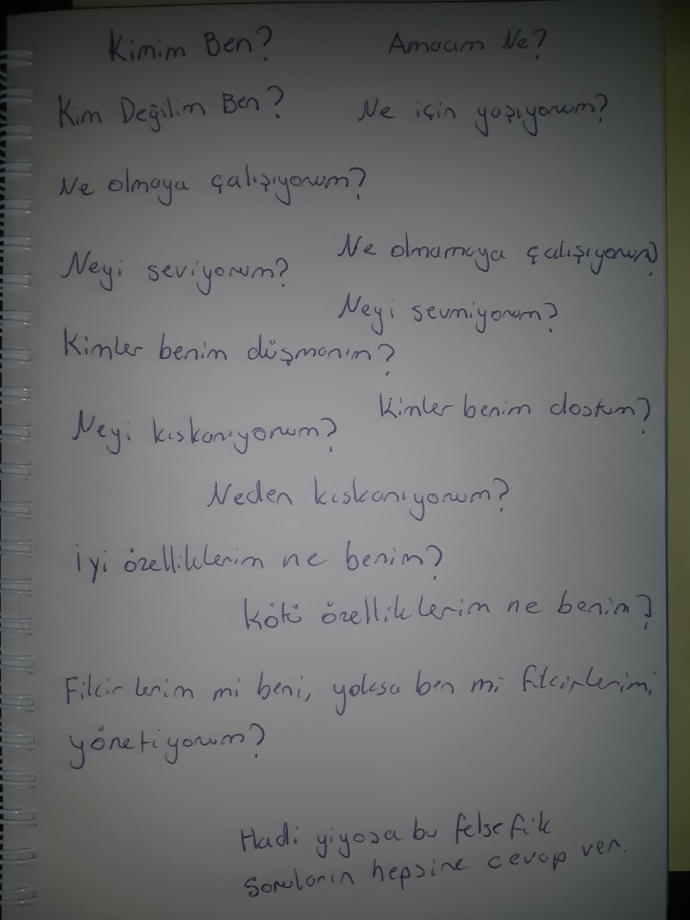 Kimim Ben?
Amacım Ne?
Kim Değilim Ben?
Ne için yaşıyorum?
Ne olmaya çalışıyorum?
Ne olmamaya çalışıyorum?
Neyi seviyorum?
Neyi sevmiyorum?
Kimler benim düşmanım?
Kimler benim dostum?
Neyi kıskanıyorum?
Neden kıskanıyorum?
İyi özelliklerim ne benim?
Kötü özelliklerim ne benim?
Fikirlerim mi beni, yoksa ben mi fikirlerimi
yönetiyorum?
Hadi yiyosa bu felsefik
soruların hepsine cevap ver.